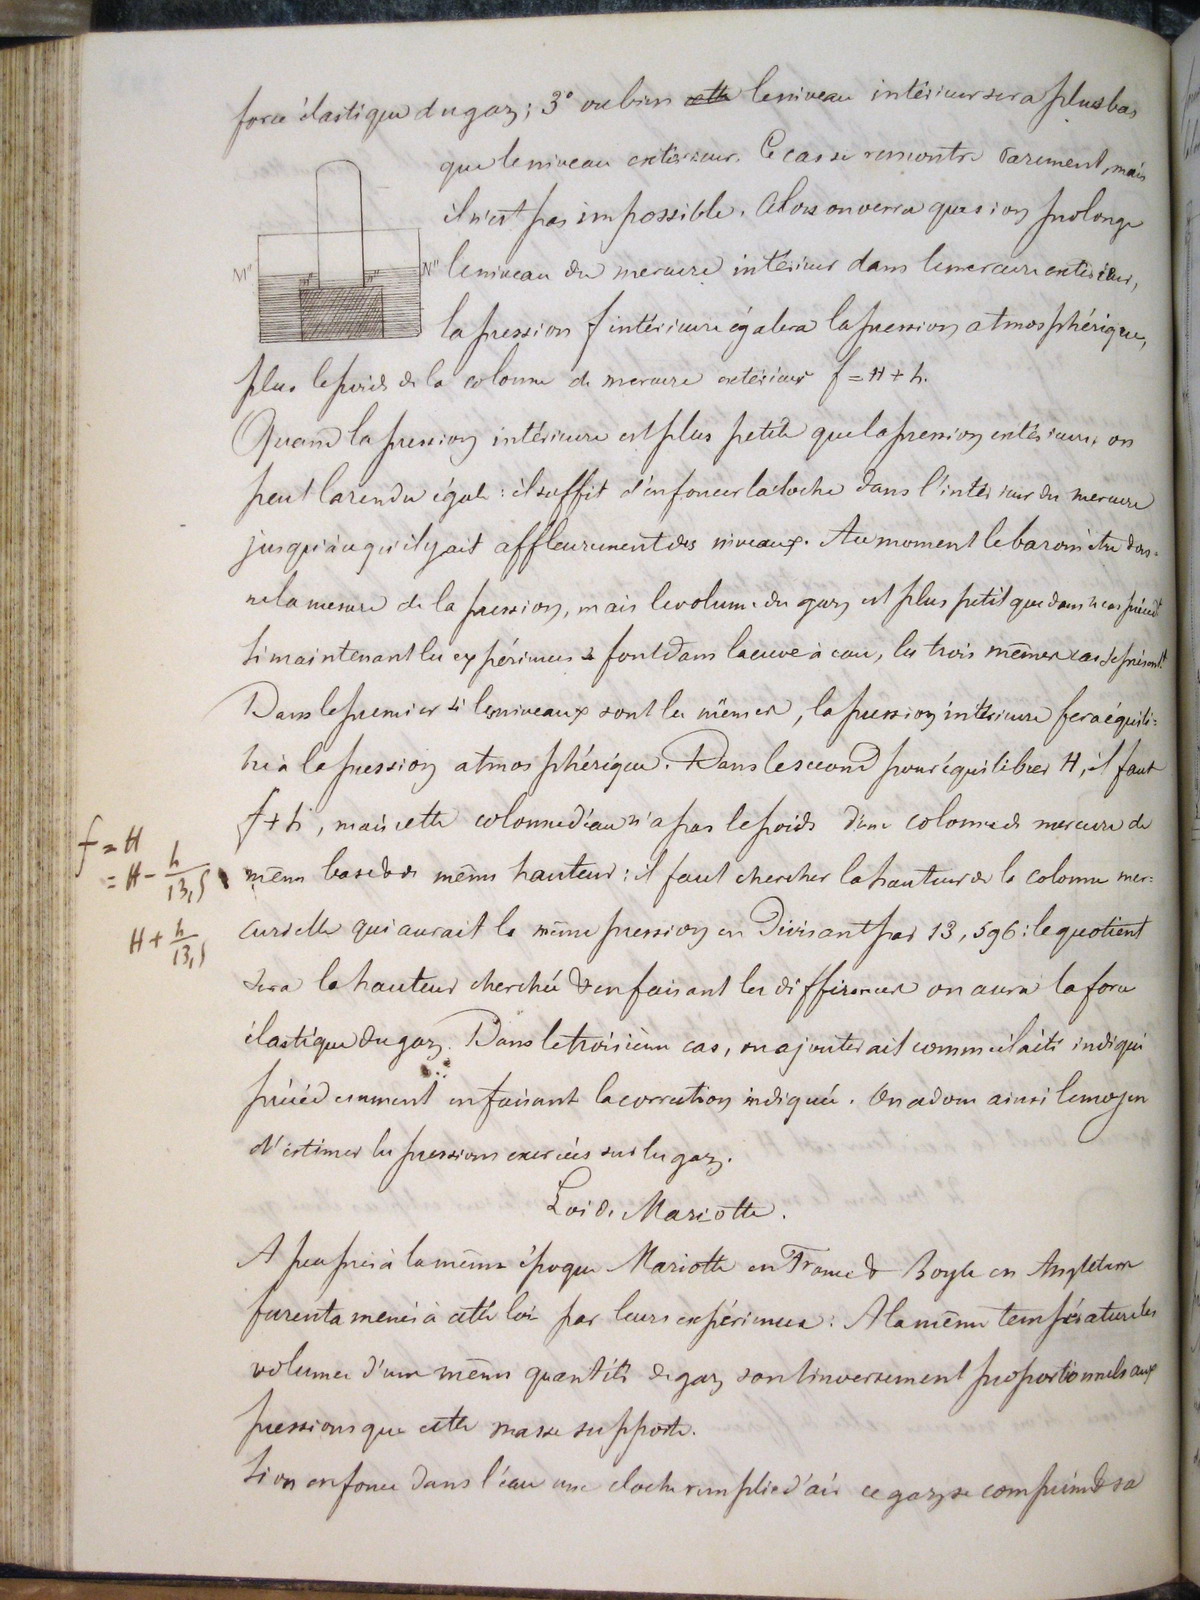 force élastique du gaz; 3° ou bien cette le niveau intérieur sera plus bas
que le niveau extérieur. Ce cas se rencontre rarement, mais
il n'est pas impossible. Alors on verra que si on prolonge
M" N" le niveau du mercure intérieur dans le mercure extérieur,
la pression f intérieure égalera la pression atmosphérique,
plus le poids de la colonne de mercure extérieur f = H + h.
Quand la pression intérieure est plus petite que la pression extérieure, on
peut la rendre égale: il suffit d'enfoncer la cloche dans l'intérieur du mercure
jusqu'à ce qu'il y ait affleurement des niveaux. Au moment le baromètre don-
ne la mesure de la pression, mais le volume du gaz est plus petit que dans le cas précédt
Si maintenant les expériences se font dans la cuve à eau, les trois mêmes cas se présentt
Dans le premier si les niveaux sont les mêmes, la pression intérieure fera équili-
bre à la pression atmosphérique. Dans le second pour équilibrer H, il faut
f + h, mais cette colonne d'eau n'a pas le poids d'une colonne de mercure de
f = H
= H - h/13,5
même base & de même hauteur: il faut chercher la hauteur de la colonne mer-
H + h/13,5
curielle qui aurait la même pression en divisant par 13,596: le quotient
sera la hauteur cherchée & en faisant les différences on aura la force
élastique du gaz. Dans le troisième cas, on ajouterait comme il a été indiqué
précédemment en faisant la correction indiquée. On a donc ainsi le moyen
d'estimer les pressions exercées sur les gaz.
Loi de Mariotte.
A peu près à la même époque Mariotte en France & Boyle en Angleterre
furent amenés à cette loi par leurs expériences: A la même température les
volumes d'une même quantité de gaz sont inversement proportionnels aux
pressions que cette masse supporte.
Si on enfonce dans l'eau une cloche remplie d'air ce gaz se comprime & sa